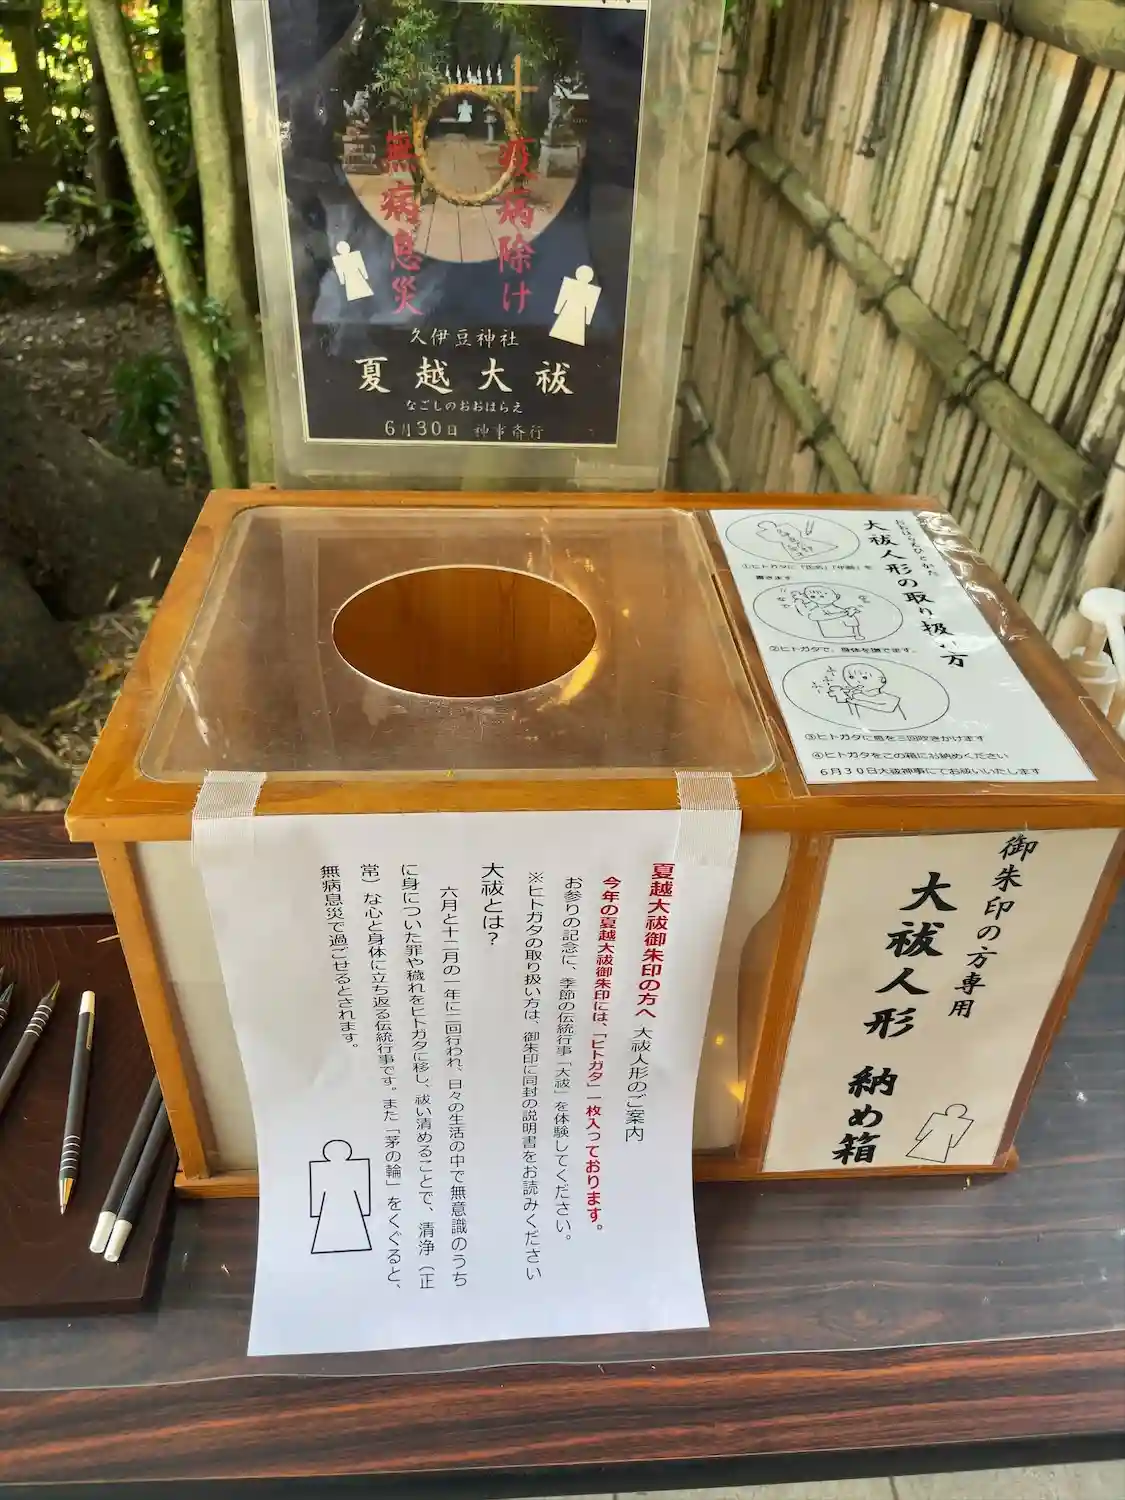 疫病除け
無病息災
久伊豆神社
夏越大祓
なごしのおおはらえ
6月30日 神事斎行
おおはらえひとかた
大祓人形の取り扱い方
①ヒトガタに「氏名」「年齢」を
書きます
②ヒトガタで、身体を撫でます。
③ヒトガタに息を三回吹きかけます
④ヒトガタをこの箱にお納めください
6月30日大祓神事にてお祓いいたします
夏越大祓御朱印の方へ 大祓人形のご案内
今年の夏越大祓御朱印には、「ヒトガタ」一枚入っております。
お参りの記念に、季節の伝統行事「大祓」を体験してください。
※ヒトガタの取り扱い方は、御朱印に同封の説明書をお読みください
大祓とは?
六月と十二月の一年に二回行われ、日々の生活の中で無意識のうち
に身についた罪や穢れをヒトガタに移し、祓い清めることで、清浄(正
常)な心と身体に立ち返る伝統行事です。また「茅の輪」をくぐると、
無病息災で過ごせるとされます。
御朱印の方専用
大祓人形 納め箱